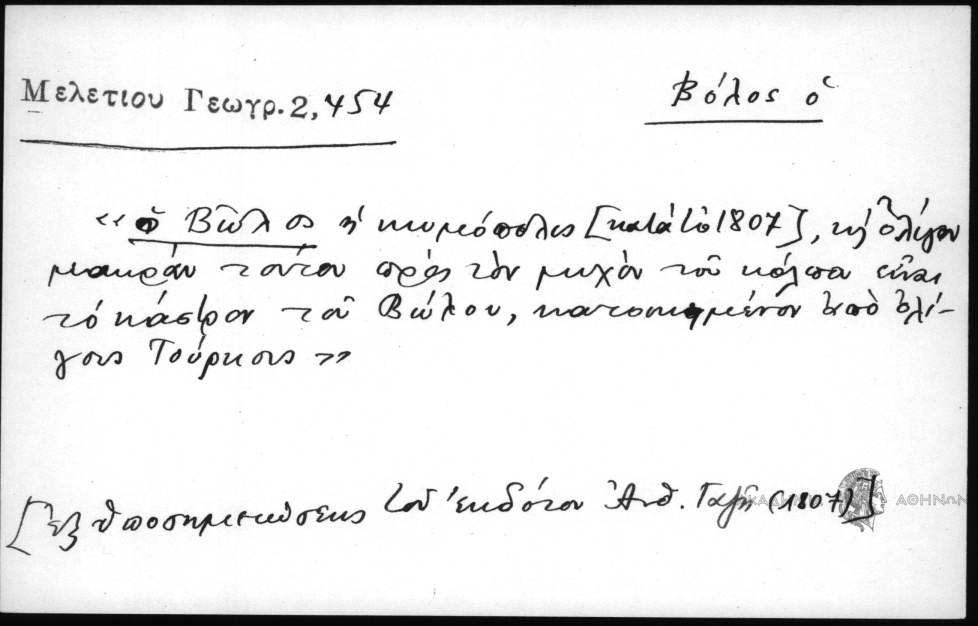 Μελετιου Γεωγρ. 2, 454
Βόλος ὁ
«ὁ Βῶλος ἡ κωμόπολις [κατὰ τὸ 1807], κὴ ὀλίγον
μακρὰν τούτου πρὸς τὸν μυχὸν τοῦ κόλπου εἶναι
τὸ κάστρον τοῦ Βώλου, κατοικημένον ὑπὸ ὀλί-
γους Τούρκους»
[Ἐξ ὑποσημειώσεως τοῦ ἐκδότου Ἀνθ. Γαζῆ (1807)]
ΑΘΗΝΩΝ